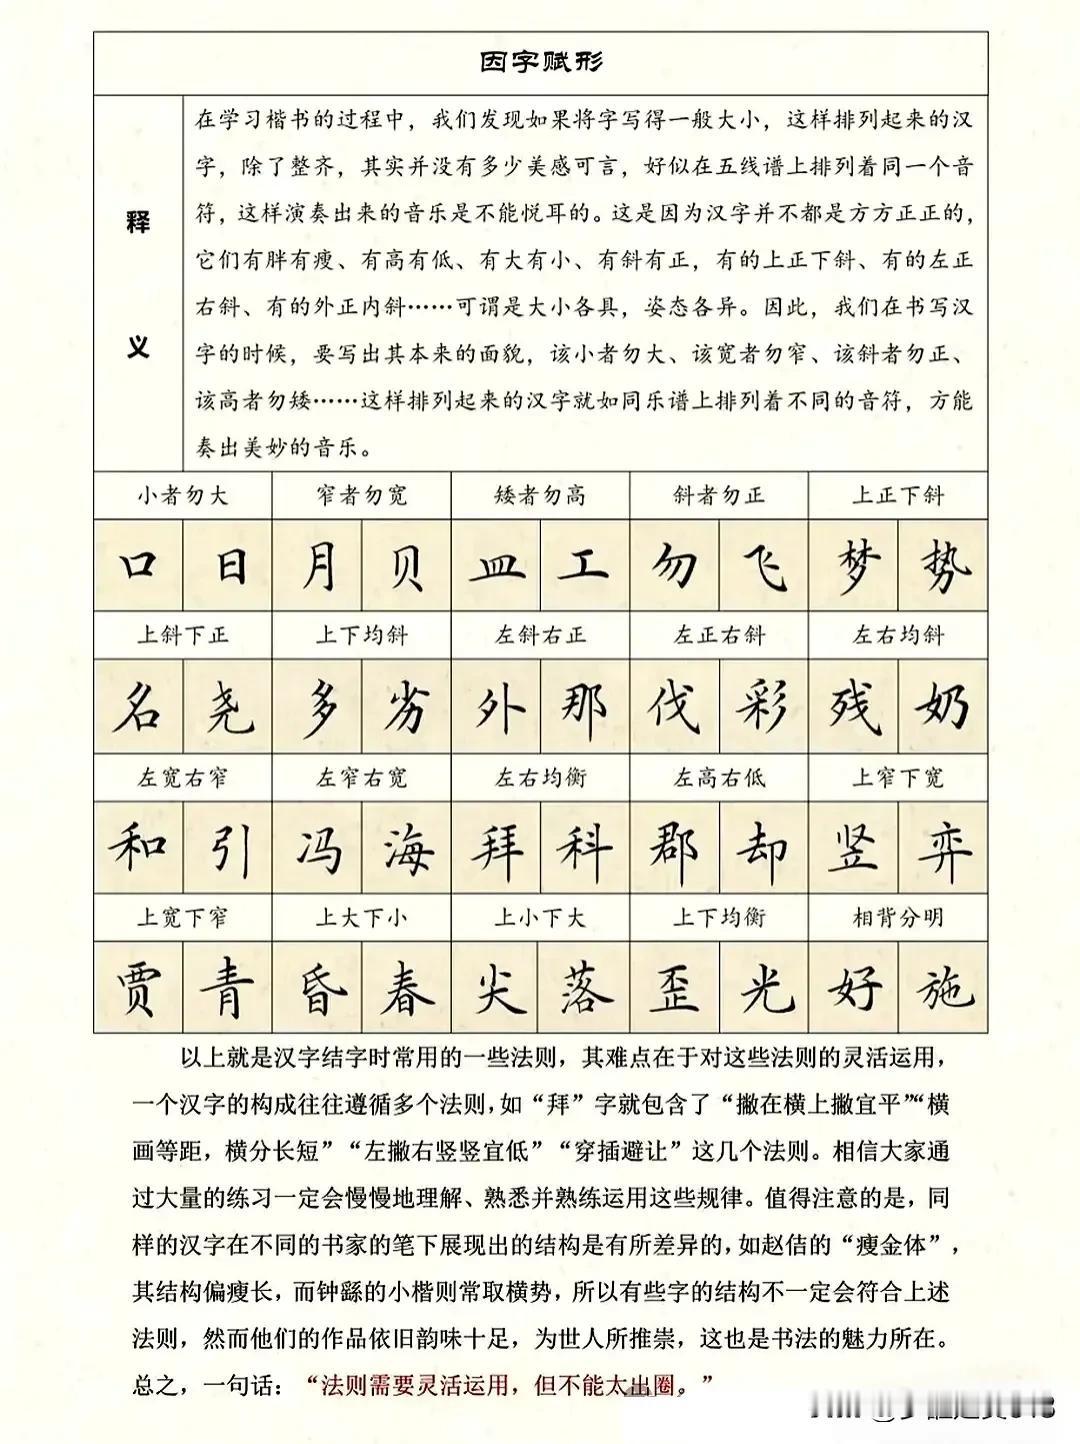 因字赋形
释义
在学习楷书的过程中，我们发现如果将字写得一般大小，这样排列起来的汉
字，除了整齐，其实并没有多少美感可言，好似在五线谱上排列着同一个音
符，这样演奏出来的音乐是不能悦耳的。这是因为汉字并不都是方方正正的，
它们有胖有瘦、有高有低、有大有小、有斜有正，有的上正下斜、有的左正
右斜、有的外正内斜……可谓是大小各具，姿态各异。因此，我们在书写汉
字的时候，要写出其本来的面貌，该小者勿大、该宽者勿窄、该斜者勿正、
该高者勿矮……这样排列起来的汉字就如同乐谱上排列着不同的音符，方能
奏出美妙的音乐。
小者勿大 窄者勿宽 矮者勿高 斜者勿正 上正下斜
口 日 月 贝 皿 工 勿 飞 梦 势
上斜下正 上下均斜 左斜右正 左正右斜 左右均斜
名 尧 多 劣 外 那 伐 彩 残 奶
左宽右窄 左窄右宽 左右均衡 左高右低 上窄下宽
和 引 冯 海 拜 科 郡 却 竖 弈
上宽下窄 上大下小 上小下大 上下均衡 相背分明
贾 青 昏 春 尖 落 歪 光 好 施
以上就是汉字结字时常用的一些法则，其难点在于对这些法则的灵活运用，
一个汉字的构成往往遵循多个法则，如“拜”字就包含了“撇在横上撇宜平”“横
画等距，横分长短”“左撇右竖竖宜低”“穿插避让”这几个法则。相信大家通
过大量的练习一定会慢慢地理解、熟悉并熟练运用这些规律。值得注意的是，同
样的汉字在不同的书家的笔下展现出的结构是有所差异的，如赵佶的“瘦金体”，
其结构偏瘦长，而钟繇的小楷则常取横势，所以有些字的结构不一定会符合上述
法则，然而他们的作品依旧韵味十足，为世人所推崇，这也是书法的魅力所在。
总之，一句话：“法则需要灵活运用，但不能太出圈。”